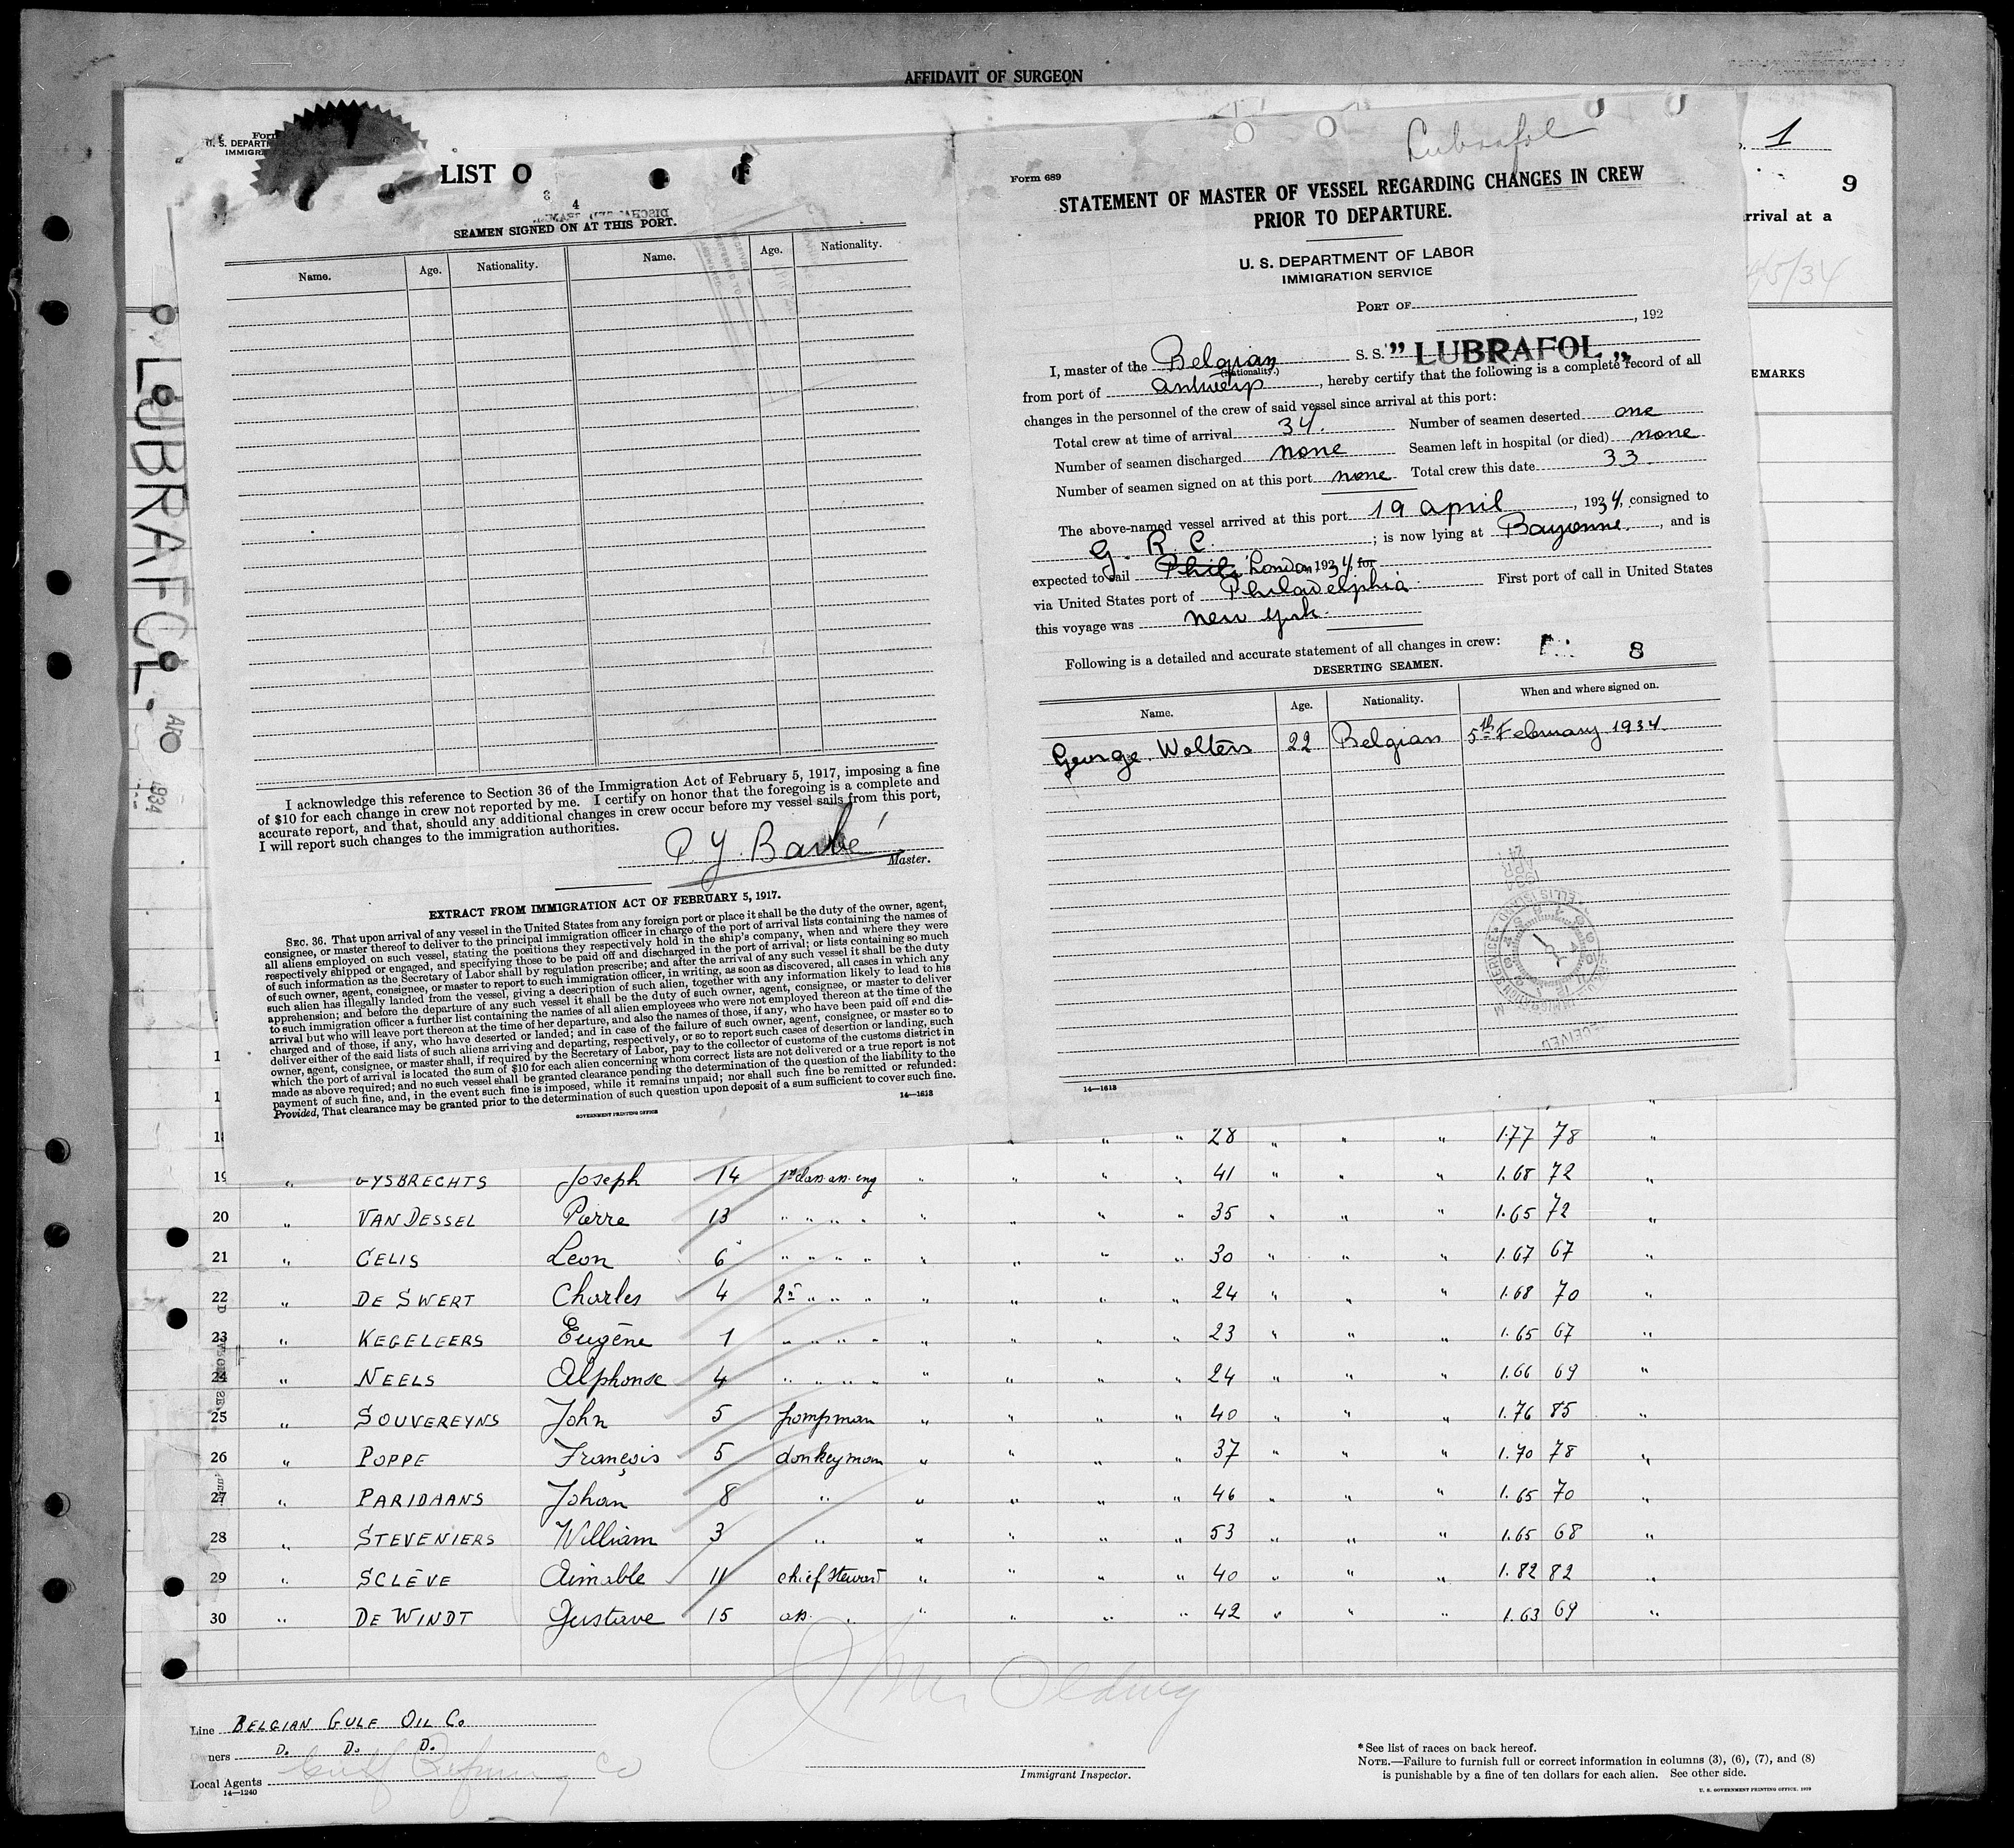 AFFIDAVIT OF SURGEON
U. S. DEPART
IMMIGR
LIST O
1
9
rrival at a
4/5/34
EMARKS
LUBRAFOL.
1934
3
4
SEAMEN SIGNED ON AT THIS PORT.
Name. Age. Nationality. Name. Age. Nationality.
I acknowledge this reference to Section 36 of the Immigration Act of February 5, 1917, imposing a fine
of $10 for each change in crew not reported by me. I certify on honor that the foregoing is a complete and
accurate report, and that, should any additional changes in crew occur before my vessel sails from this port,
I will report such changes to the immigration authorities.
P Y. Barbé
Master.
EXTRACT FROM IMMIGRATION ACT OF FEBRUARY 5, 1917.
SEC. 36. That upon arrival of any vessel in the United States from any foreign port or place it shall be the duty of the owner, agent,
consignee, or master thereof to deliver to the principal immigration officer in charge of the port of arrival lists containing the names of
all aliens employed on such vessel, stating the positions they respectively hold in the ship's company, when and where they were
respectively shipped or engaged, and specifying those to be paid off and discharged in the port of arrival; or lists containing so much
of such information as the Secretary of Labor shall by regulation prescribe; and after the arrival of any such vessel it shall be the duty
of such owner, agent, consignee, or master to report to such immigration officer, in writing, as soon as discovered, all cases in which any
such alien has illegally landed from the vessel, giving a description of such alien, together with any information likely to lead to his
apprehension; and before the departure of any such vessel it shall be the duty of such owner, agent, consignee, or master to deliver
to such immigration officer a further list containing the names of all alien employees who were not employed thereon at the time of the
arrival but who will leave port thereon at the time of her departure, and also the names of those, if any, who have been paid off and dis-
charged and of those, if any, who have deserted or landed; and in case of the failure of such owner, agent, consignee, or master so to
deliver either of the said lists of such aliens arriving and departing, respectively, or so to report such cases of desertion or landing, such
owner, agent, consignee, or master shall, if required by the Secretary of Labor, pay to the collector of customs of the customs district in
which the port of arrival is located the sum of $10 for each alien concerning whom correct lists are not delivered or a true report is not
made as above required; and no such vessel shall be granted clearance pending the determination of the question of the liability to the
payment of such fine, and, in the event such fine is imposed, while it remains unpaid; nor shall such fine be remitted or refunded:
Provided, That clearance may be granted prior to the determination of such question upon deposit of a sum sufficient to cover such fine.
14—1613
GOVERNMENT PRINTING OFFICE
Lubrafol
Form 689
STATEMENT OF MASTER OF VESSEL REGARDING CHANGES IN CREW
PRIOR TO DEPARTURE.
U. S. DEPARTMENT OF LABOR
IMMIGRATION SERVICE
PORT OF
, 192
I, master of the Belgian S. S. "LUBRAFOL"
(Nationality.)
from port of Antwerp, hereby certify that the following is a complete record of all
changes in the personnel of the crew of said vessel since arrival at this port:
Total crew at time of arrival 34. Number of seamen deserted one
Number of seamen discharged none Seamen left in hospital (or died) none
Number of seamen signed on at this port none Total crew this date 33
The above-named vessel arrived at this port 19 april, 1934, consigned to
G. R. C. ; is now lying at Bayonne, and is
expected to sail Phila London, 1934, for
via United States port of Philadelphia First port of call in United States
this voyage was New York.
Following is a detailed and accurate statement of all changes in crew:
8
DESERTING SEAMEN.
Name. Age. Nationality. When and where signed on.
George Wolters 22 Belgian 5th February 1934.
14—1613
18 " " 28 " " " 1.77 78 "
19 " GYSBRECHTS Joseph 14 1st class ass. eng " " " " 41 " " " 1.68 72 "
20 " VAN DESSEL Pierre 13 " " " " " " " " 35 " " " 1.65 72 "
21 " CELIS Leon 6 " " " " " " " " 30 " " " 1.67 67 "
22 " DE SWERT Charles 4 2n " " " " " " " 24 " " " 1.68 70 "
23 " KEGELEERS Eugène 1 " " " " " " " " 23 " " " 1.65 67 "
24 " NEELS Alphonse 4 " " " " " " " " 24 " " " 1.66 69 "
25 " SOUVEREYNS John 5 pompman " " " " 40 " " " 1.76 85 "
26 " POPPE François 5 donkeyman " " " " 37 " " " 1.70 78 "
27 " PARIDAANS Johan 8 " " " " " 46 " " " 1.65 70 "
28 " STEVENIERS William 3 " " " " " 53 " " " 1.65 68 "
29 " SCLÈVE Aimable 11 chief steward " " " " 40 " " " 1.82 82 "
30 " DE WINDT Gustave 15 ass. " " " " " 42 " " " 1.63 69 "
Line BELGIAN GULF OIL Co
Owners D. D. D.
Local Agents Gulf Refining Co
14—1240
Immigrant Inspector.
* See list of races on back hereof.
NOTE.—Failure to furnish full or correct information in columns (3), (6), (7), and (8)
is punishable by a fine of ten dollars for each alien. See other side.
U. S. GOVERNMENT PRINTING OFFICE. 1929